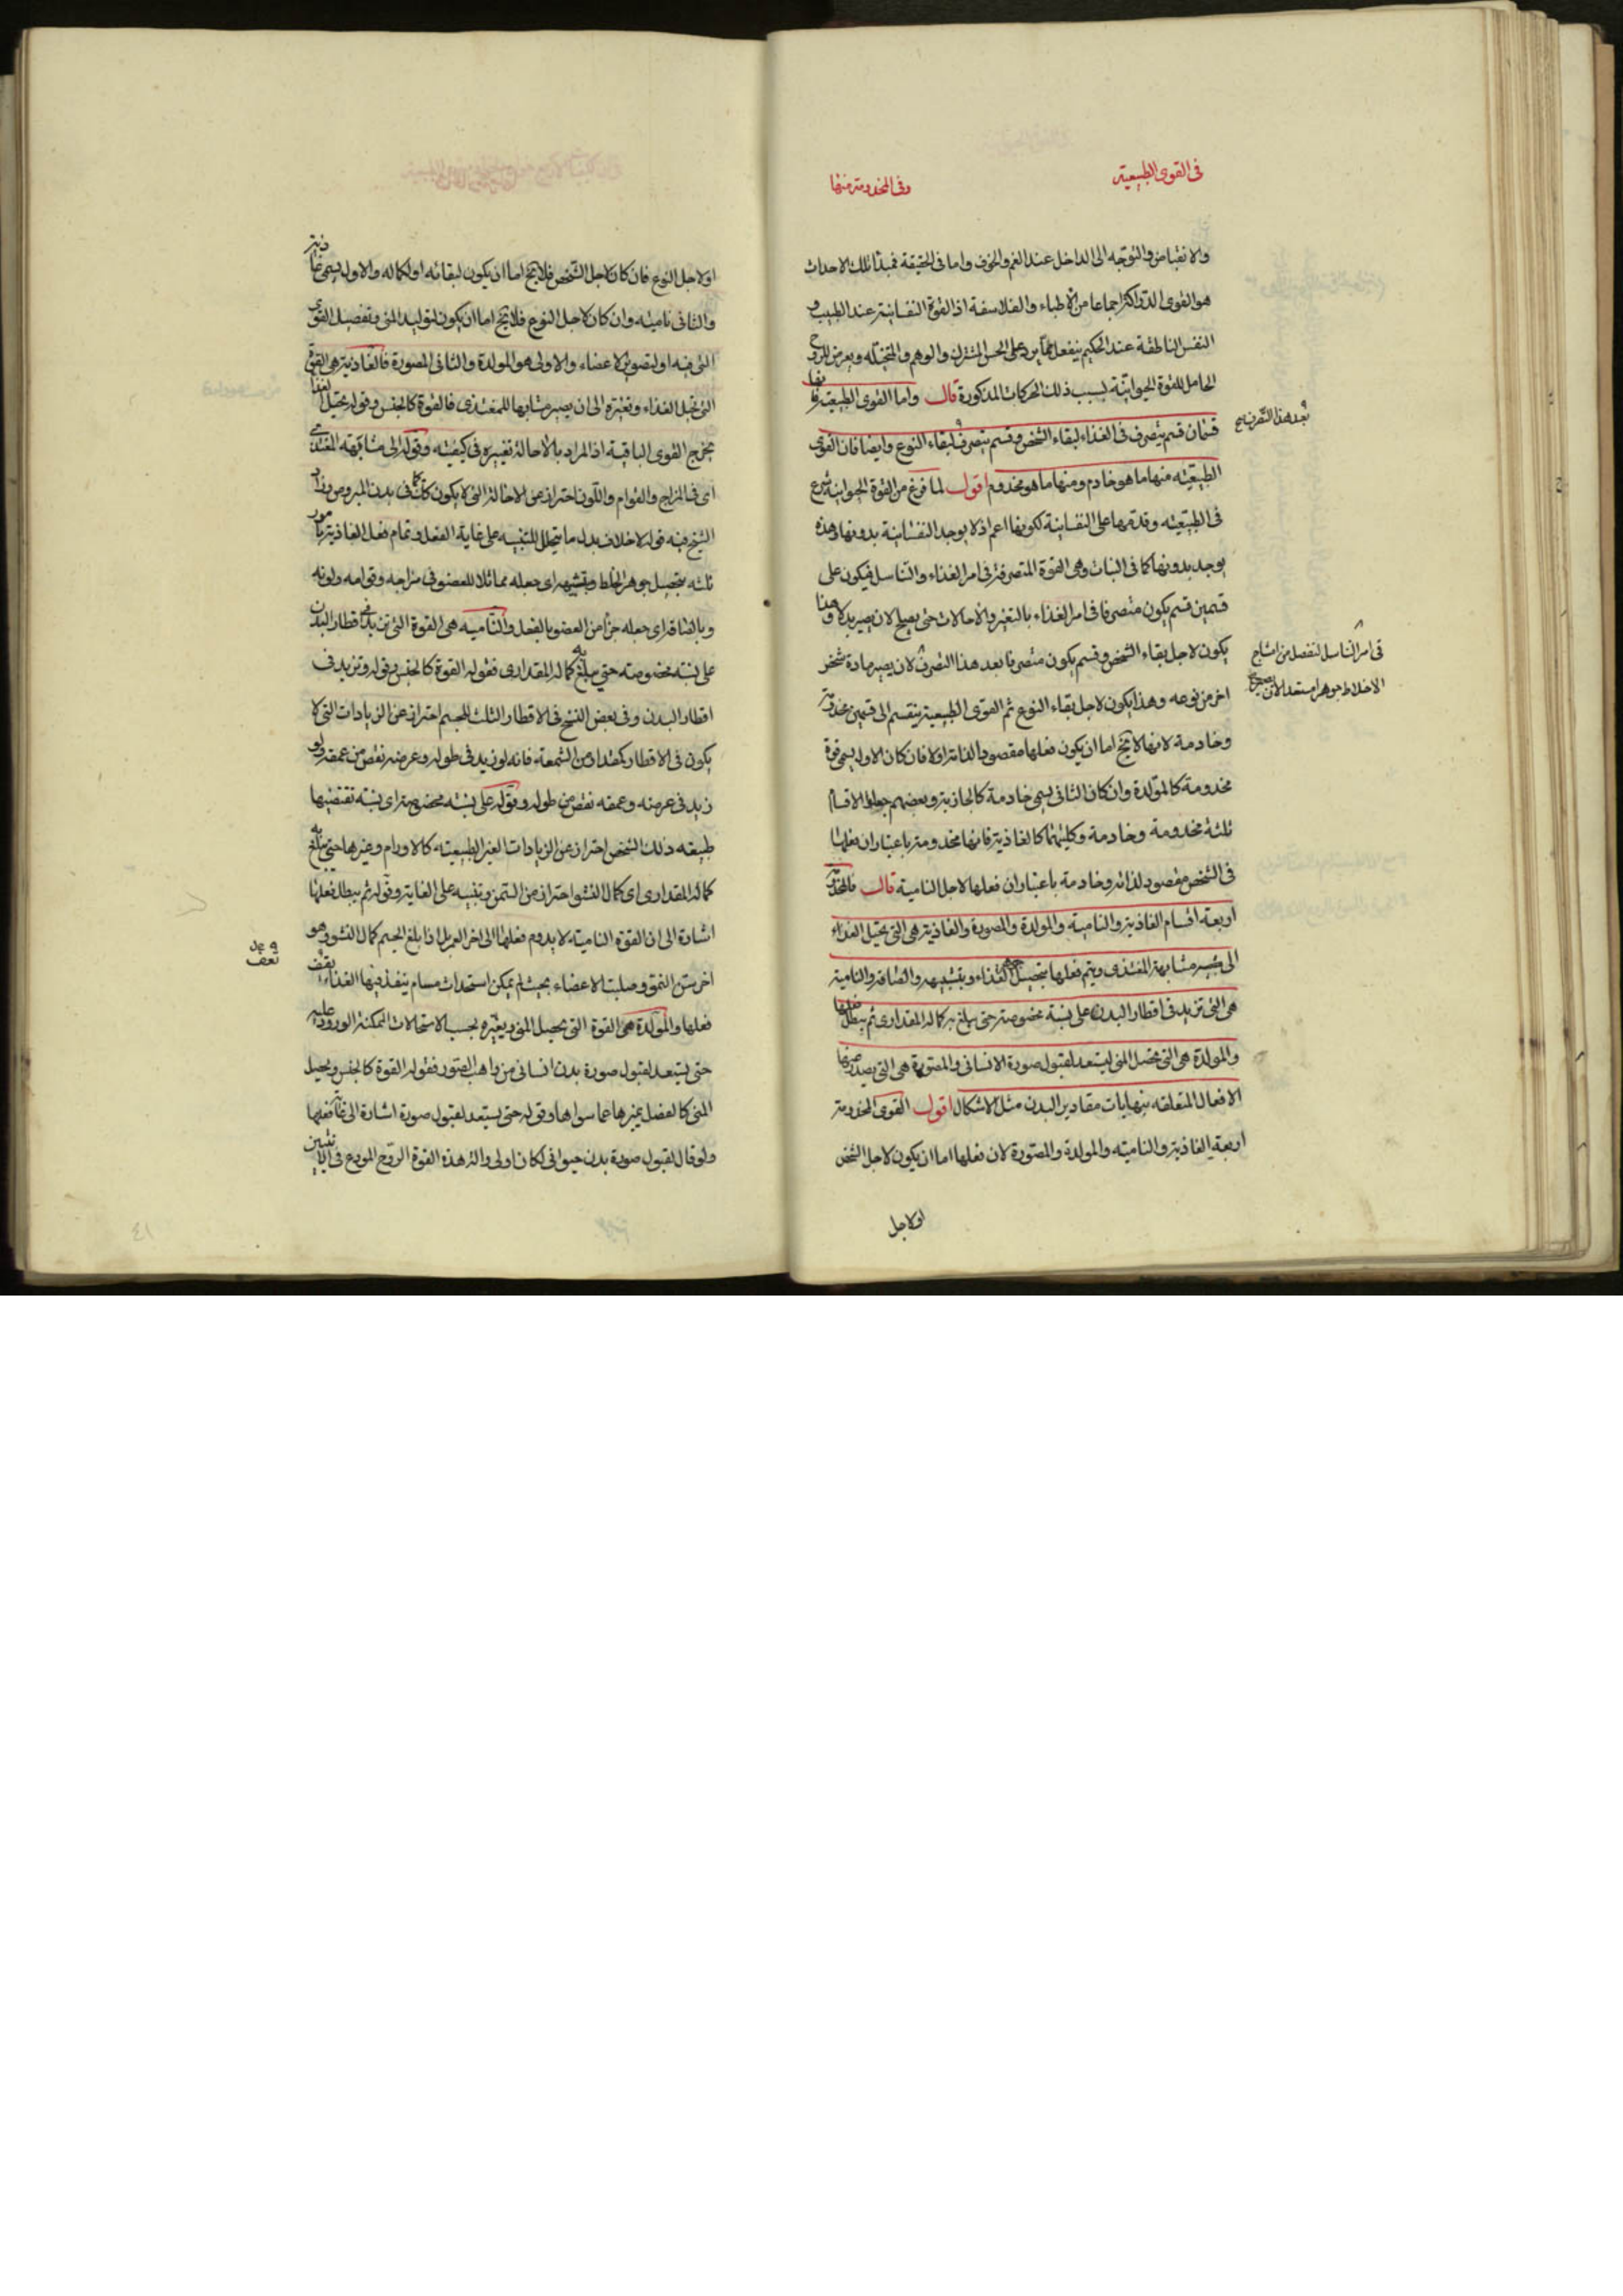 في القوى الطبيعية
وفي المخدومة منها
والانقباض والتوجه الى الداخل عند الغم والخوف واما في الحقيقة فمبدأ تلك الاحداث
هو القوى الدراكة اجماعا من الاطباء والفلاسفة اذ القوة النفسانية عند الطبيب و
النفس الناطقة عند الحكيم ينفعل عما يرد على الحس المشترك والوهم والمتخيلة ويعرض للروح
الحامل للقوة الحيوانية بسبب ذلك الحركات المذكورة قال واما القوى الطبيعية فانها
قسمان قسم يتصرف في الغذاء لبقاء الشخص وقسم يتصرف لبقاء النوع وايضا فان القوى
الطبيعية منها ما هو خادم ومنها ما هو مخدوم اقول لما فرغ من القوة الحيوانية شرع
في الطبيعية وقدمها على النفسانية لكونها اعم اذ لا يوجد النفسانية بدونها وهذه
يوجد بدونها كما في النبات وهي القوة المتصرفة في امر الغذاء والتناسل فيكون على
قسمين قسم يكون متصرفا في امر الغذاء بالتغير والاحالات حتى يصلح لان يصير بدلا وهذا
يكون لاجل بقاء الشخص وقسم يكون متصرفا بعد هذا التصرف لان يصير مادة شخص
في امر التناسل لتفصل من امشاج
الاخلاط جوهرا مستعدا لان يصير
اخر من نوعه وهذا يكون لاجل بقاء النوع ثم القوى الطبيعية ينقسم الى قسمين مخدومة
وخادمة لانها لا يخ اما ان يكون فعلها مقصودا لذاته او لا فان كان الاول يسمى قوة
مخدومة كالمولدة وان كان الثاني يسمى خادمة كالجاذبة وبعضهم جعلوا الاقسام
ثلثة مخدومة وخادمة وكليهما كالغاذية فانها مخدومة باعتبار ان فعلها
في الشخص مقصود لذاته وخادمة باعتبار ان فعلها لاجل النامية قال فالمخدومة
اربعة اقسام الغاذية والنامية والمولدة والمصورة والغاذية هي التي تحيل الغذاء
الى مشابهة المغتذى ويتم فعلها بتحصيل جوهر الغذاء وبتشبيهه والصاقه والنامية
هي التي تزيد في اقطار البدن على نسبة مخصوصة حتى يبلغ به كماله المقدارى ثم يبطل فعلها
والمولدة هي التي تحصل المنى ليستعد لقبول صورة الانسانى والمصورة هي التي يصدر عنها
الافعال المتعلقة بنهايات مقادير البدن مثل الاشكال اقول القوى المخدومة
اربعة الغاذية والنامية والمولدة والمصورة لان فعلها اما ان يكون لاجل الشخص
او لاجل
او لاجل النوع فان كان لاجل الشخص فلا يخ اما ان يكون لبقائه او لكماله والاول يسمى غاذية
والثاني نامية وان كان لاجل النوع فلا يخ اما ان يكون لتوليد المنى وتفصيل القوى
التي فيه او لتصوير الاعضاء والاولى هو المولدة والثانى المصورة فالغاذية هي القوة
التي تحيل الغذاء وتغيره الى ان يصير مشابها للمغتذى فالقوة كالجنس وقوله تحيل الغذاء
يخرج القوى الباقية اذ المراد بالاحالة تغييره في كيفيته وقوله الى مشابهة المغتذى
اى في المزاج والقوام واللون احتراز عن الاحالة التي لا يكون كذلك كما في بدن المبروص وزاد
الشيخ فيه قوله لاخلاف بدل ما يتحلل للتنبيه على غاية الفعل وتمام فعل الغاذية بامور
ثلثه بتحصيل جوهر الخلط وبتشبيهه اى جعله مماثلا للعضو في مزاجه وقوامه ولونه
وبالصاقه اى جعله جزأ من العضو بالفعل والنامية هي القوة التي تزيد في اقطار البدن
على نسبة مخصوصة حتى يبلغ به كماله المقدارى فقوله القوة كالجنس وقوله وتزيد في
اقطار البدن وفي بعض النسخ في الاقطار الثلث للجسم احتراز عن الزيادات التي لا
يكون في الاقطار كمقدار من الشمعة فانه لو زيد في طوله وعرضه نقص من عمقه ولو
زيد في عرضه وعمقه نقص من طوله وقوله على نسبة مخصوصة اى نسبة تقتضيها
طبيعه ذلك الشخص احتراز عن الزيادات الغير الطبيعية كالاورام وغيرها حتى يبلغ به
كماله المقدارى اى كمال النشو احتراز من السمن وتنبيه على الغاية وقوله ثم يبطل فعلها
اشارة الى ان القوة النامية لا يدوم فعلها الى اخر العمر بل اذا بلغ الجسم كمال النشو وهو
اخر سن النمو وصلبت الاعضاء بحيث لم يمكن استحداث مسام ينفذ فيها الغذاء يقف
فعلها والمولدة هي القوة التي يحيل المنى ويغيره بحسب الاستحالات الممكنة الورود عليه
حتى يستعد لقبول صورة بدن انسانى من واهب الصور فقوله القوة كالجنس ويحيل
المنى كالفصل يميزها عما سواها وقوله حتى يستعد لقبول صورة اشارة الى تمام فعلها
ولو قال لقبول صورة بدن حيوانى لكان اولى وآلة هذه القوة الروح المودع في الانثيين